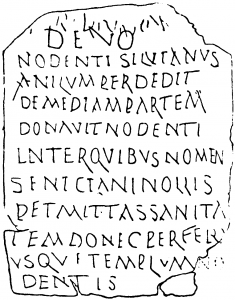 DEVO
NODENTI SILVIANVS
ANILVM PERDEDIT
DEMEDIAM PARTEM
DONAVIT NODENTI
INTER QVIBVS NOMEN
SENICIANI NOLLIS
PETMITTAS SANITA
TEM DONEC PERFERA
VSQVE TEMPLVM
DENTIS